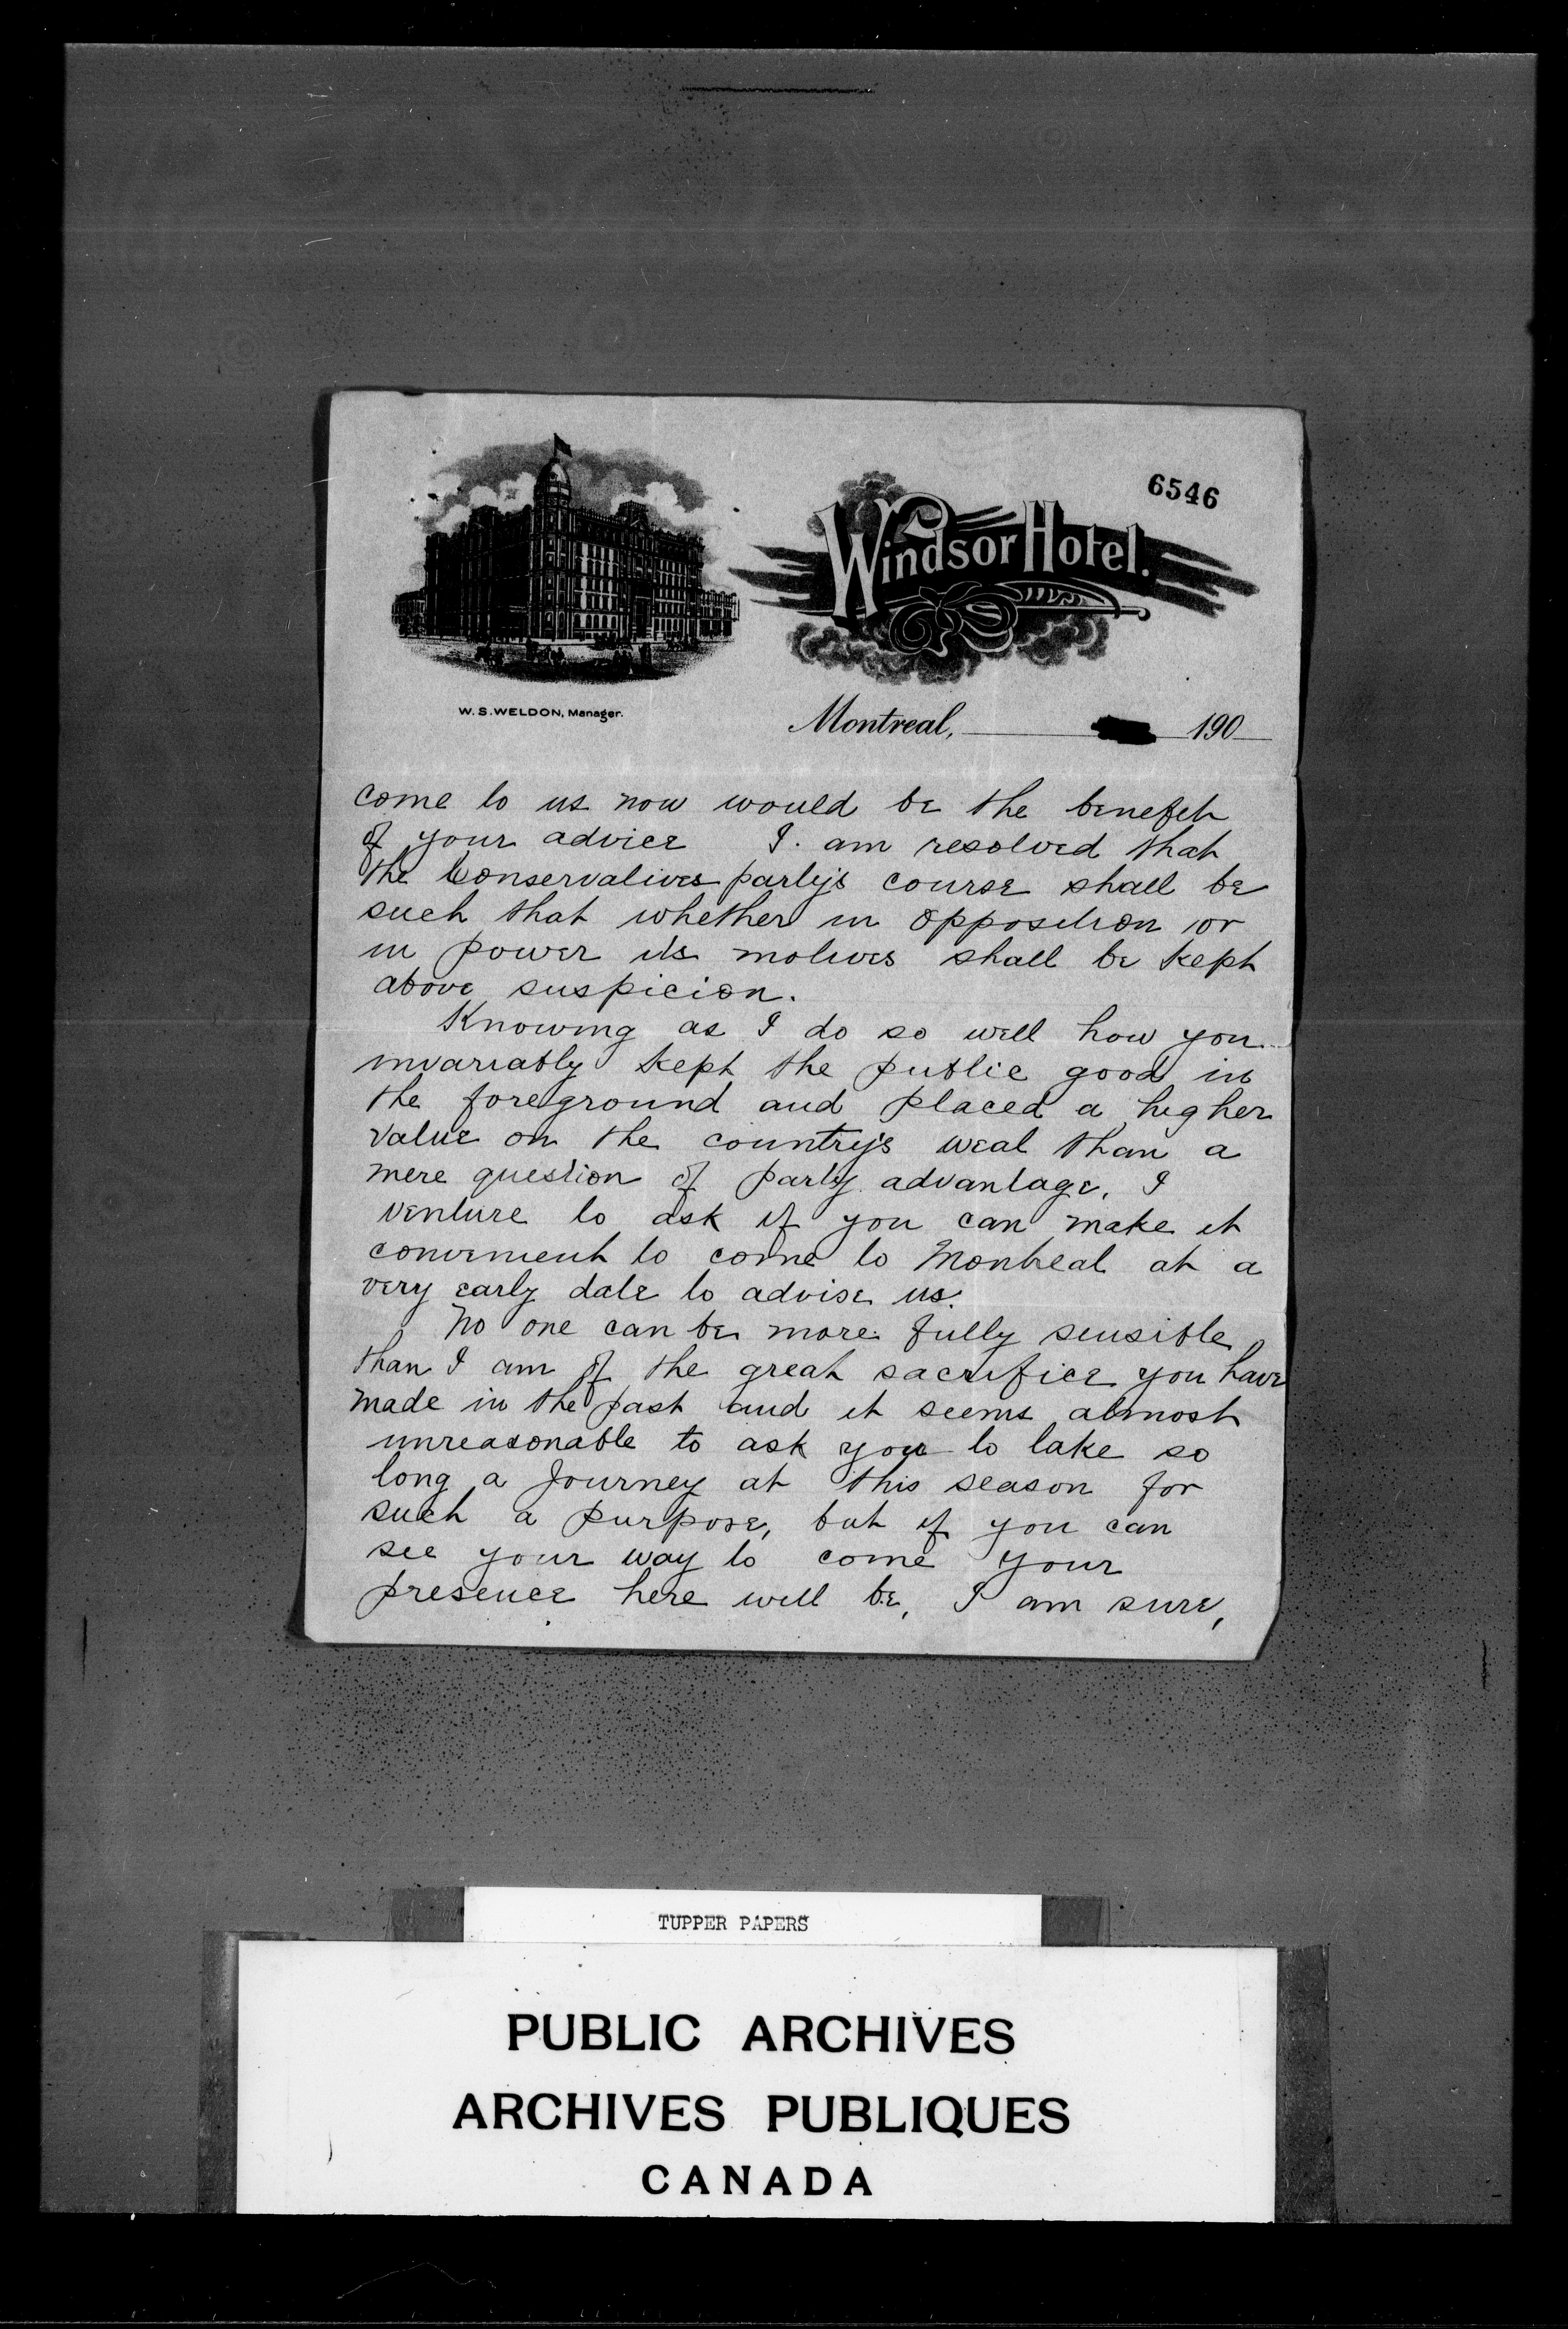 6546
Windsor Hotel.
W.S.WELDON, Manager.
Montreal, 190
come to us now would be the benefit
of your advice I. am resolved that
the Conservatives party's course shall be
such that whether in opposition or
in power its motives shall be kept
above suspicion.
Knowing as I do so well how you
invariably kept the public good in
the foreground and placed a higher
value on the country's weal than a
mere question of party advantage, I
venture to ask if you can make it
convenient to come to Montreal at a
very early date to advise us.
No one can be more fully sensible
than I am of the great sacrifice you have
made in the past and it seems almost
unreasonable to ask you to take so
long a Journey at this season for
such a purpose, but if you can
see your way to come your
presence here will be, I am sure,
TUPPER PAPERS
PUBLIC ARCHIVES
ARCHIVES PUBLIQUES
CANADA